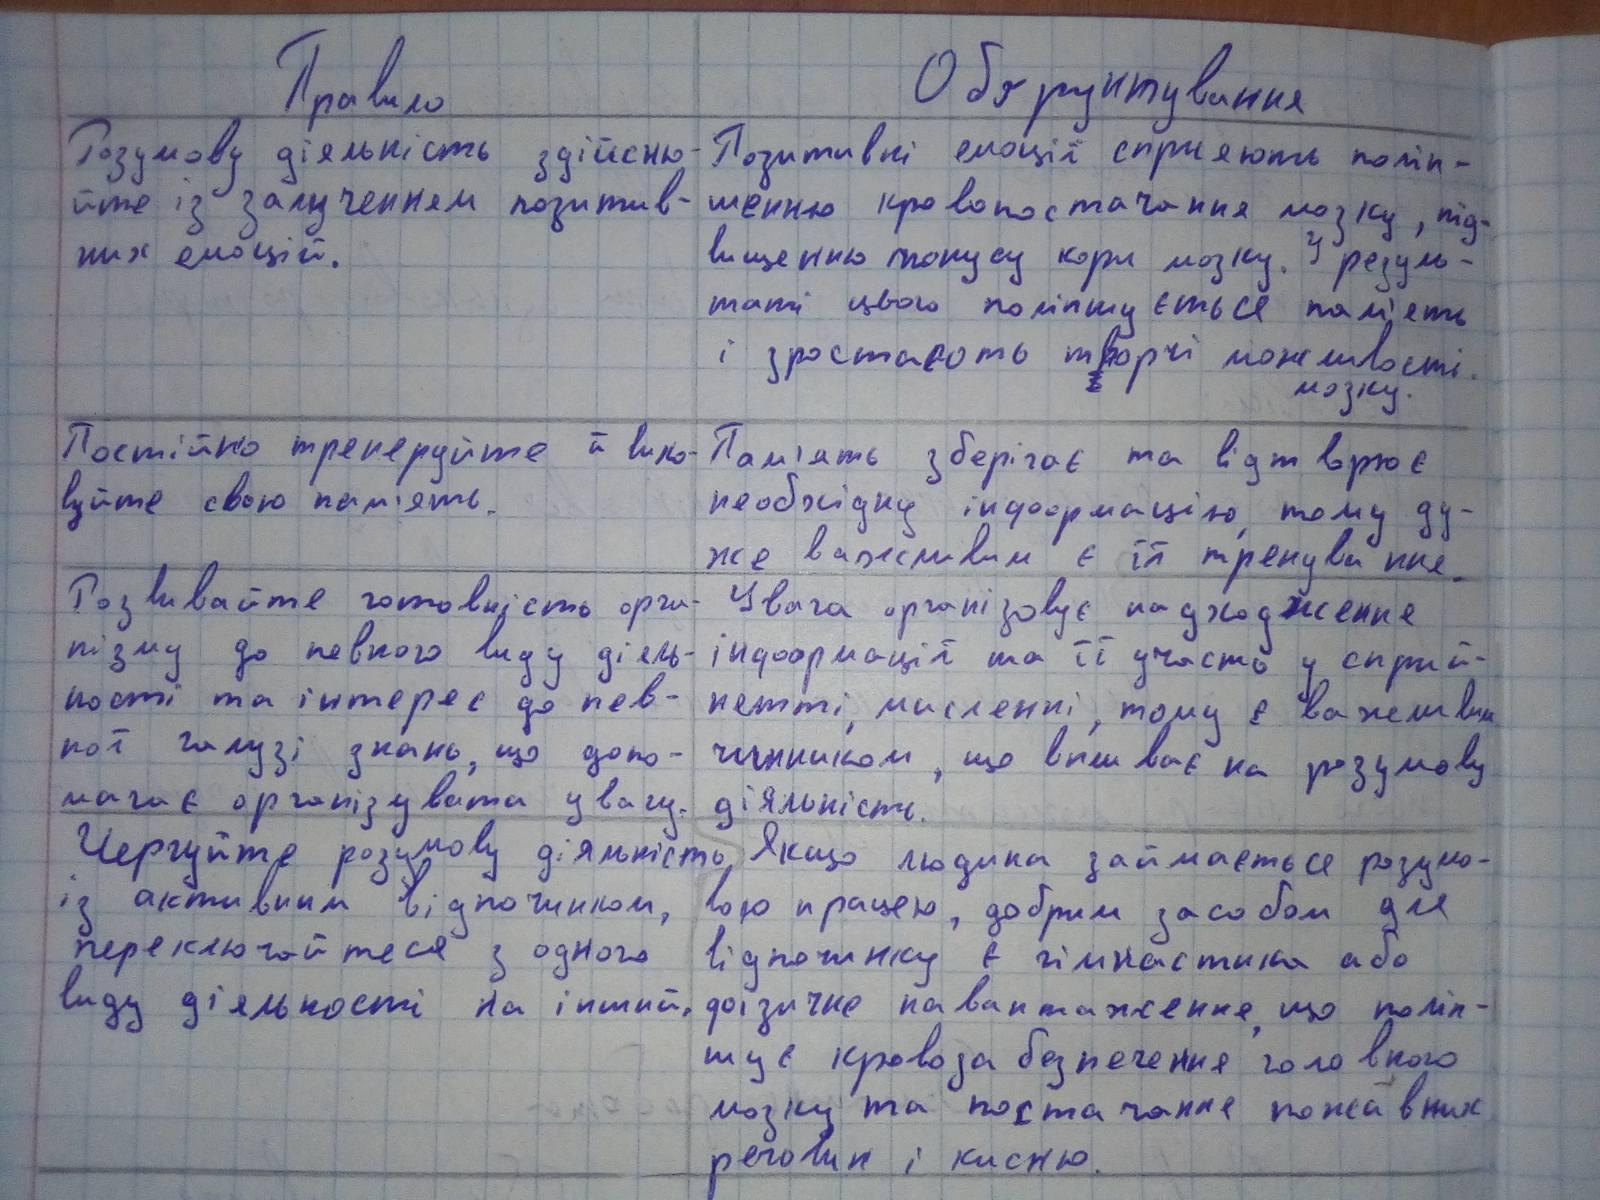 Правило
Обґрунтування
Розумову діяльність здійсню-
йте із залученням позитив-
них емоцій.
Позитивні емоції сприяють поліп-
шенню кровопостачання мозку, під-
вищенню тонусу кори мозку. У резуль-
таті цього поліпшується пам'ять
і зростають творчі можливості
мозку.
Постійно тренеруйте й вико-
вуйте свою пам'ять.
Пам'ять зберігає та відтворює
необхідну інформацію, тому ду-
же важливим є її тренування.
Розвивайте готовність орга-
нізму до певного виду діяль-
ності та інтерес до пев-
ної галузі знань, що допо-
магає організувати увагу.
Увага організовує надходження
інформації та її участь у сприй-
нятті, мисленні, тому є важливим
чинником, що впливає на розумову
діяльність.
Чергуйте розумову діяльність
із активним відпочинком,
переключайтеся з одного
виду діяльності на інший.
Якщо людина займається розумо-
вою працею, добрим засобом для
відпочинку є гімнастика або
фізичне навантаження, що поліп-
шує кровозабезпечення головного
мозку та постачання поживних
речовин і кисню.